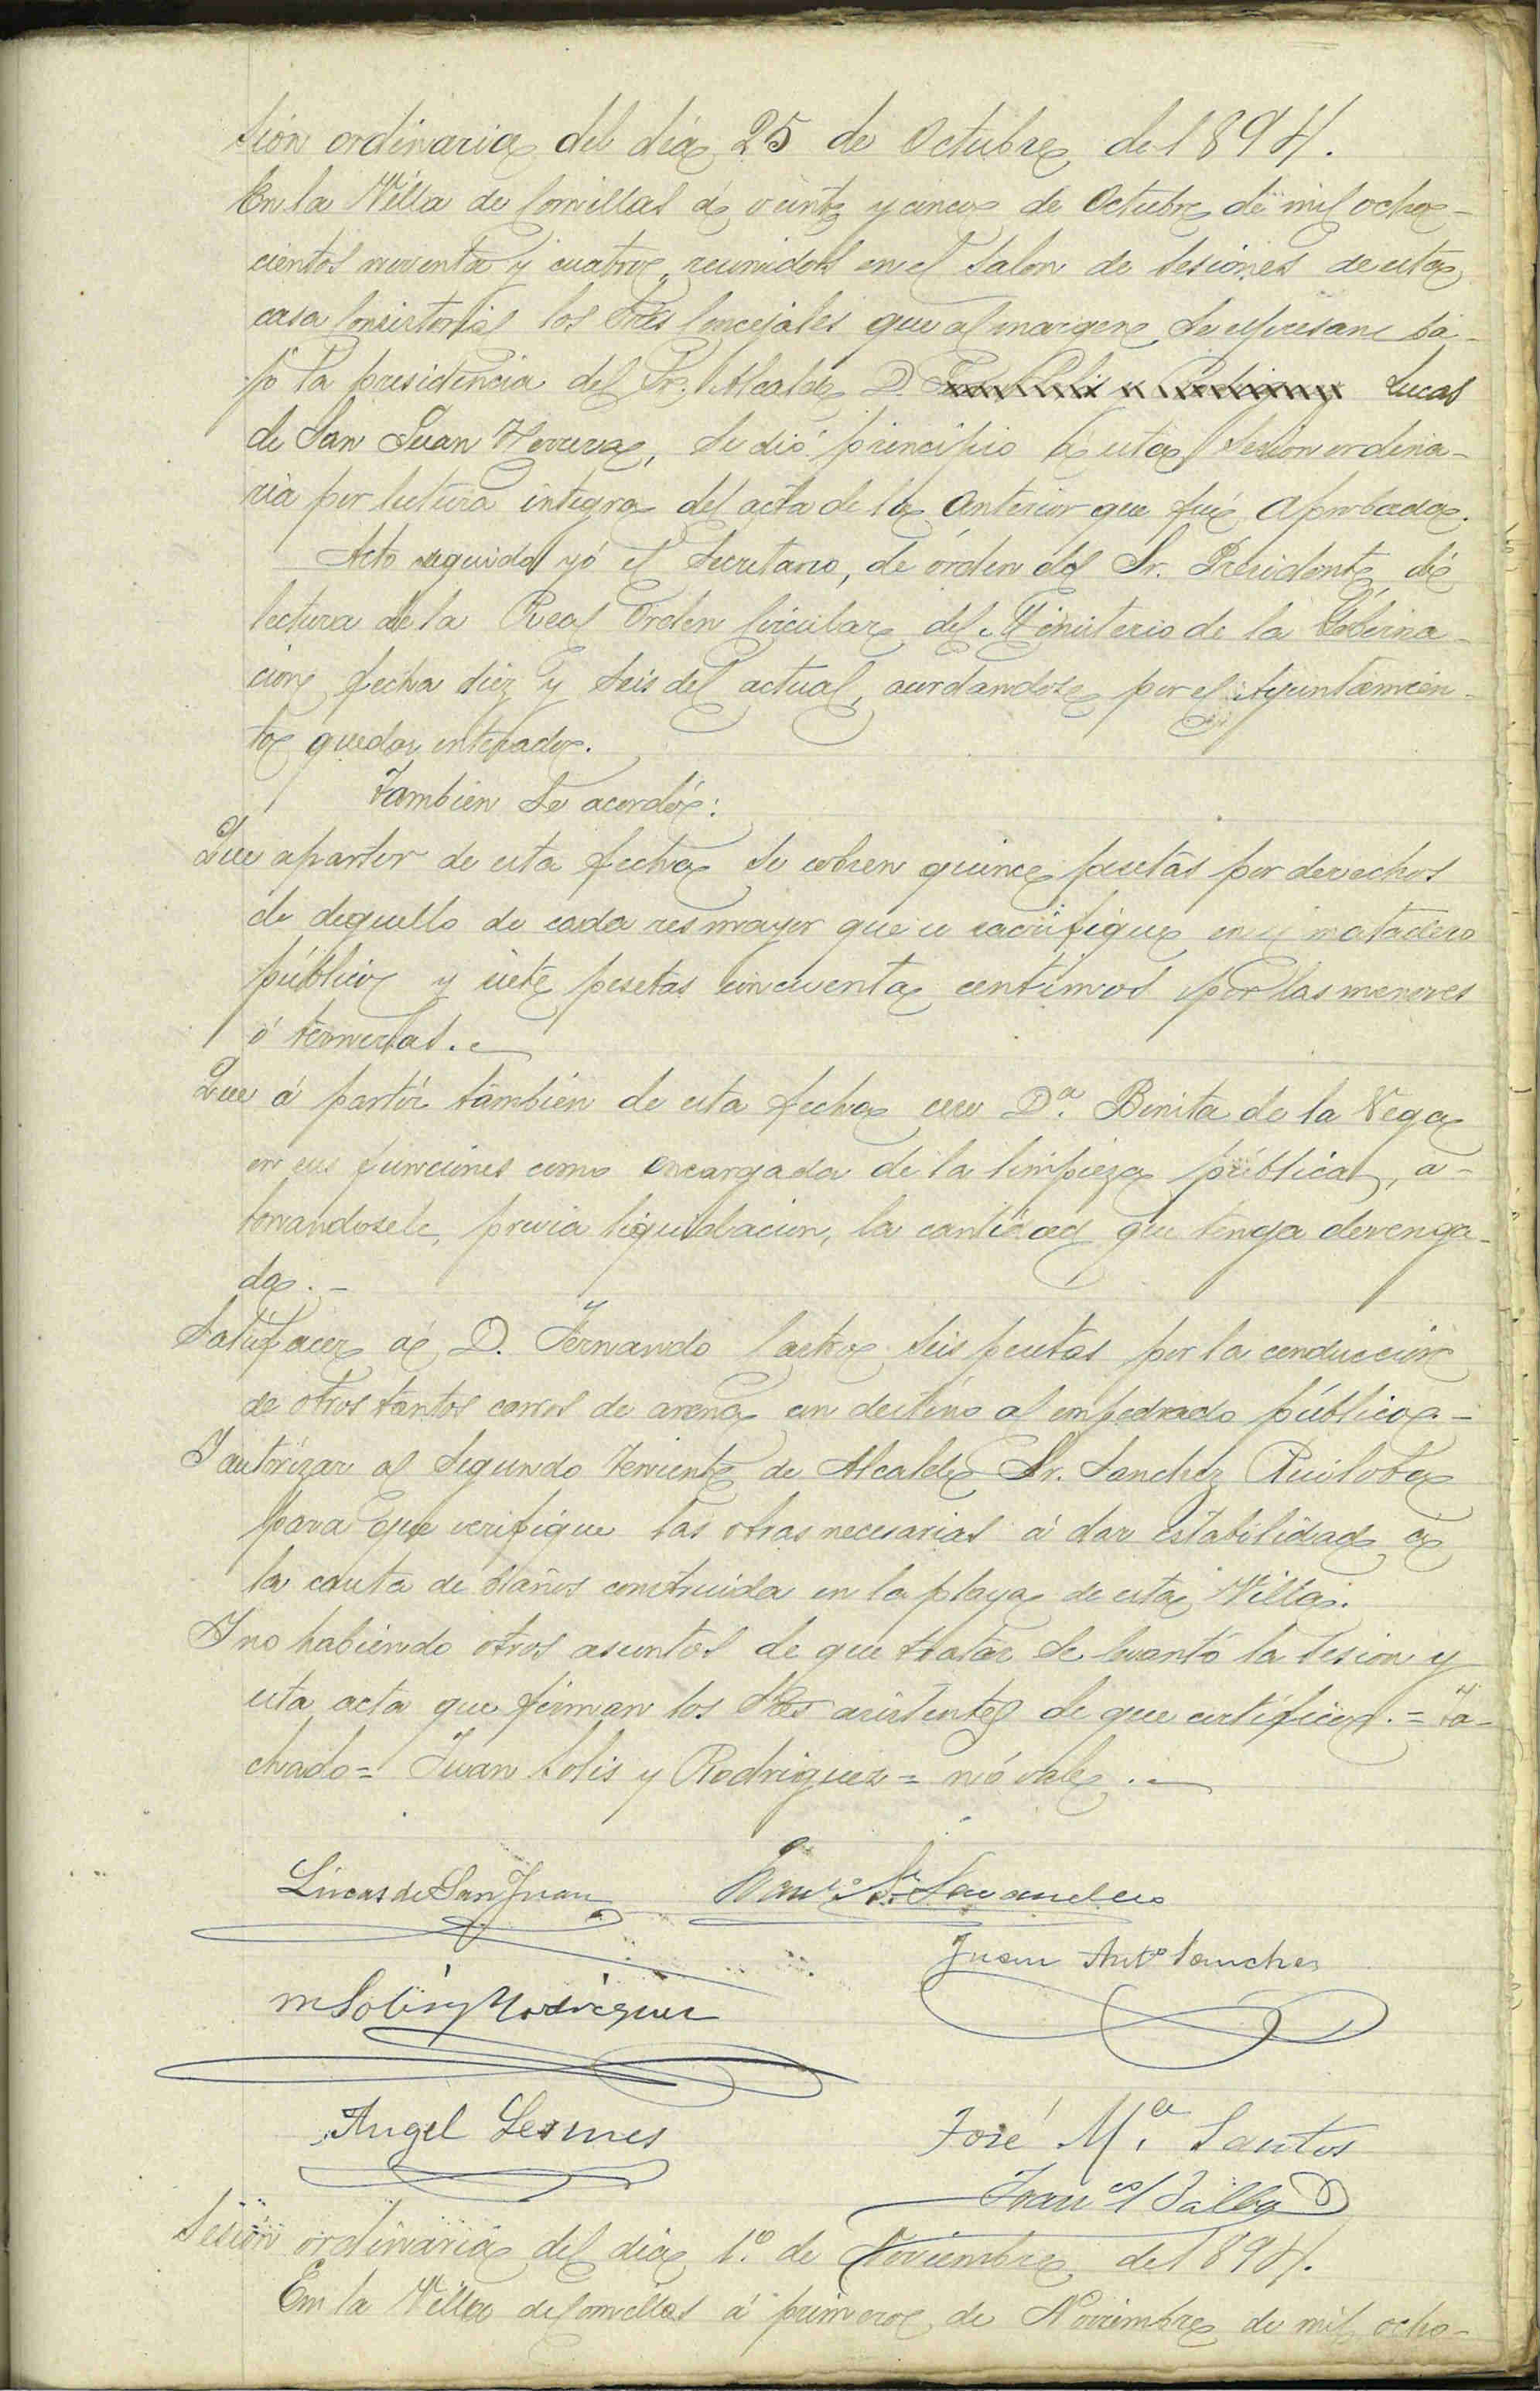 sión ordinaria del día 25 de Octubre de 1894.
En la Villa de Comillas á veinte y cinco de Octubre de mil ocho-
cientos noventa y cuatro, reunidos en el Salon de sesiones de esta
casa Consistorial los Sres Concejales que al margen se espresan ba-
jo la presidencia del Sr. Alcalde D. Juan Solis y Rodriguez Lucas
de San Juan Herrera, se dió principio á esta sesion ordina-
ria por lectura integra del acta de la anterior que fué aprobada.
Acto seguido yó el Secretario, de órden del Sr. Presidente dí
lectura de la Real Orden Circular del Ministerio de la Goberna-
cion fecha diez y seis del actual, acordandose por el Ayuntamien-
to quedar enterado.
Tambien se acordó:
Que apartir de esta fecha se cobren quince pesetas por derechos
de deguello de cada res mayor que se sacrifique en el matadero
público y siete pesetas cincuenta centimos por las menores
ó terneras.
Que á partir tambien de esta fecha cese Dª. Benita de la Vega
en sus funciones como encargada de la limpieza pública, a-
bonandosele, previa liquidacion, la cantidad que tenga devenga-
da.-
Satisfacer á D. Fernando Castro seis pesetas por la conduccion
de otros tantos carros de arena con destino al empedrado público.-
Y autorizar al Segundo Teniente de Alcalde Sr. Sanchez Ruiloba
para que verifique las obras necesarias á dar estabilidad á
la caseta de baños construida en la playa de esta Villa.
Y no habiendo otros asuntos de que tratar se levantó la sesion y
esta acta que firman los Sres asistentes de que certifico.= Ta-
chado= Juan Solis y Rodriguez= nó vale.
Lucas de San Juan
Juan Antº Sanchez
M Solis y Rodriguez
Angel Lesmes
José Mª. Santos
Sesión ordinaria del día 1º. de Noviembre de 1894.
En la Villa de Comillas á primero de Noviembre de mil ocho-